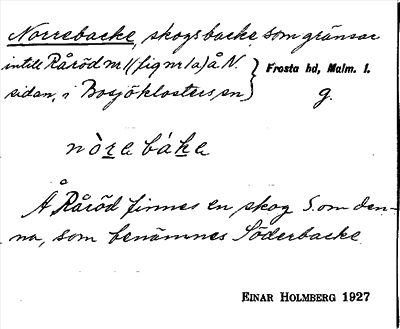 Norrebacke, skogsbacke som gränsar
intill Råröd nr 1 (fig nr 1a) å N.
sidan, i Bosjöklosters sn
Frosta hd, Malm. l.
g.
nò̱ra báḵa
Å Råröd finnes en skog S. om den-
na, som benämnes Söderbacke
EINAR HOLMBERG 1927